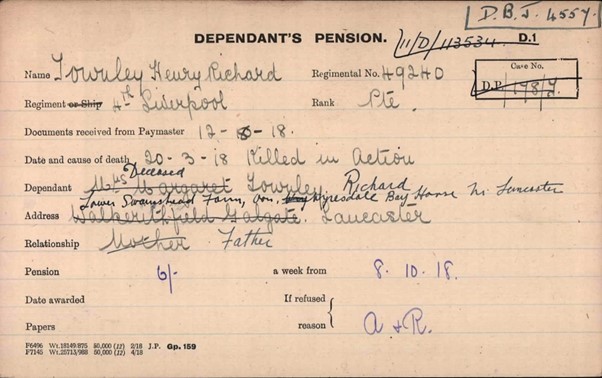 D.B.J. 4557.
DEPENDANT'S PENSION. 11/D/113534 D.1
Name Townley Henry Richard Regimental No. 49240 Case No.
D.P.
Regiment or Ship 4th Liverpool Rank Pte.
Documents received from Paymaster 12-8-18.
Date and cause of death 20-3-18 Killed in Action
Deceased
Dependant Mrs Margaret Townley Richard
Lower Swainshead Farm, Wyresdale Bay Horse Nr Lancaster
Address Galgate Lancaster
Relationship Mother Father
Pension 6/- a week from 8.10.18.
Date awarded If refused
Papers reason A & R.
F6496 Wt.18149/875 50,000 (12) 2/18 J.P. Gp. 159
F7145 Wt.25713/988 50,000 (12) 4/18